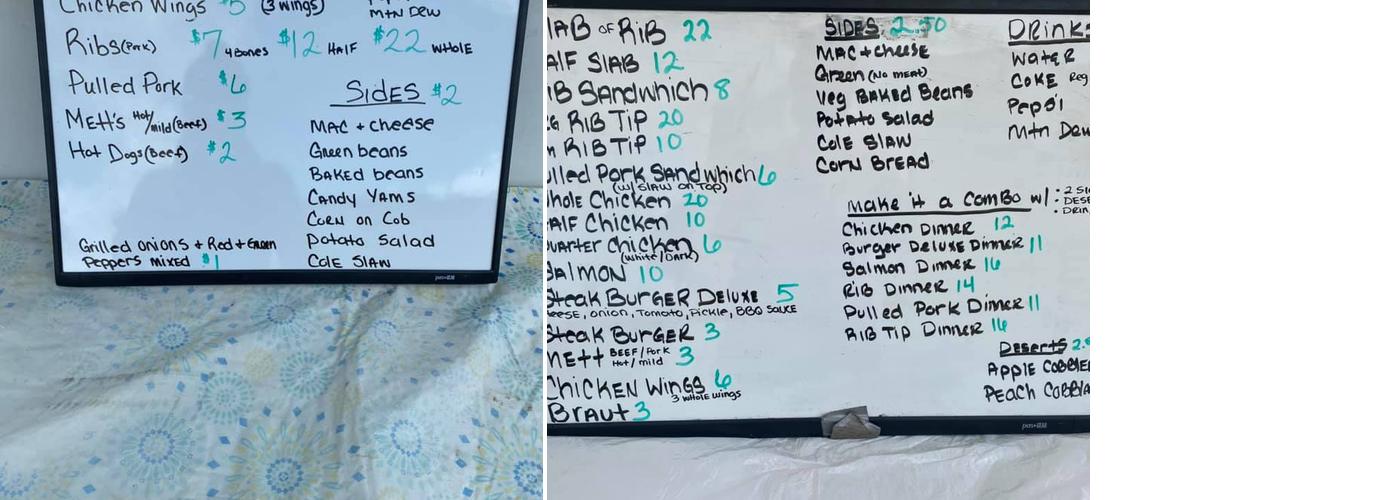 Chicken Wings $5 (3 wings)
Mtn Dew
Ribs (Pork) $7 4 Bones $12 Half $22 Whole
Pulled Pork $6
Mett's Hot/mild (Beef) $3
Hot Dogs (Beef) $2
Grilled onions + Red + Green
Peppers mixed $1
Sides $2
Mac + cheese
Green beans
Baked beans
Candy Yams
Corn on Cob
Potato Salad
Cole Slaw
lab of Rib 22
alf Slab 12
ib Sandwhich 8
g Rib Tip 20
m Rib Tip 10
ulled Pork Sandwhich 6
(w/ Slaw on Top)
hole Chicken 20
alf Chicken 10
uarter Chicken 6
(white/Dark)
Salmon 10
Steak Burger Deluxe 5
eese, onion, Tomato, Pickle, BBQ Sauce
Steak Burger 3
Mett Beef/Pork Hot/mild 3
Chicken Wings 6
3 whole wings
Braut 3
Sides 2.50
Mac + cheese
Green (No meat)
Veg Baked Beans
Potato Salad
Cole Slaw
Corn Bread
Drinks
Water
Coke Reg
Pepsi
Mtn Dew
Make it a Combo w/: 2 Si
Dese
• Drin
Chicken Dinner 12
Burger Deluxe Dinner 11
Salmon Dinner 16
Rib Dinner 14
Pulled Pork Dinner 11
Rib Tip Dinner 16
Deserts 2.
Apple Cobble
Peach Cobbl